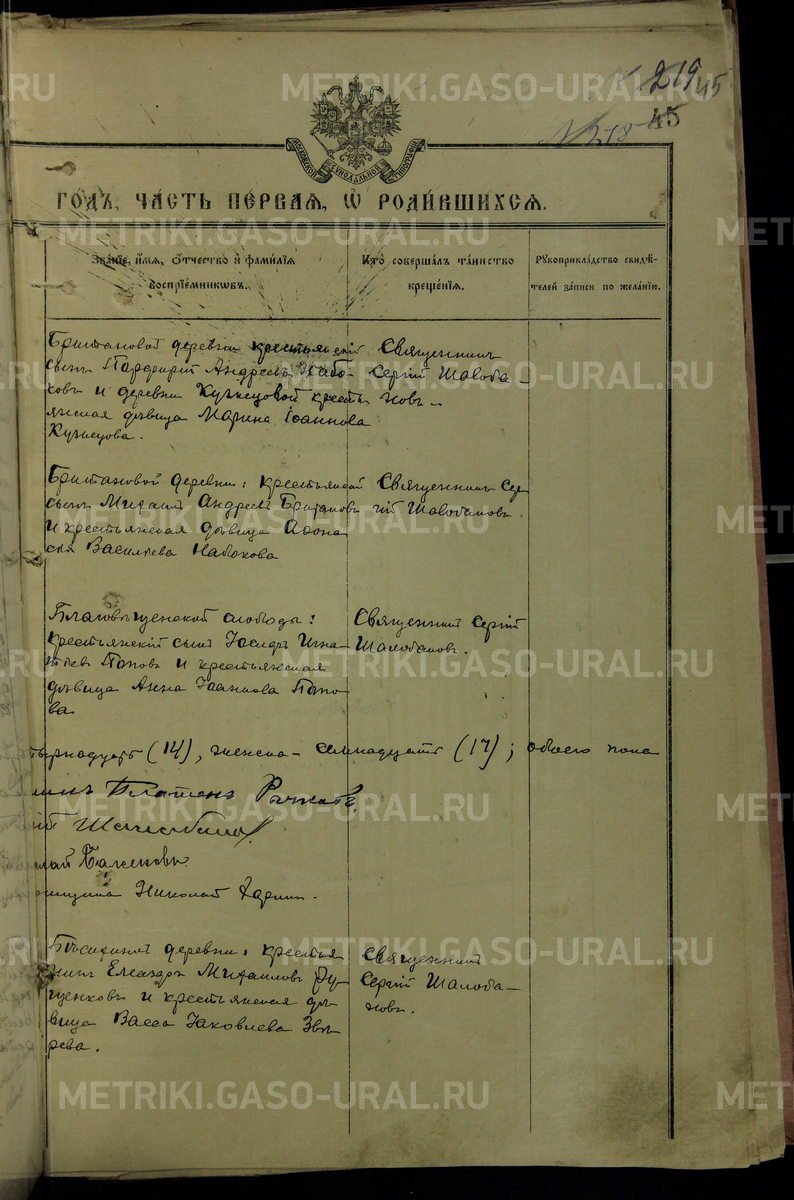 219
45
45
№ 218
МОСКОВСКОЙ СѴНОДАЛЬНОЙ ТИПОГРАФІИ
ГОДЪ, ЧАСТЬ ПЕРВАЯ, Ѡ РОДИВШИХСЯ.
Званіе, имя, отчество и фамилія воспріемниковъ.
Кто совершалъ таинство крещенія.
Рукоприкладство свидѣтелей записи по желанію.
Британовой деревни крестьянскій
сынъ Порфирій Андреевъ Набо-
ковъ и деревни Кузнецовой кресть
янская дѣвица Марина Іоаннова
Кузнецова.
Священникъ
Сергій Шалоба-
новъ
Британовой деревни: крестьянскій
сынъ Михаилъ Андреевъ Британовъ
и крестьянская дѣвица Аѳана
сія Васильева Набокова
Священникъ Сер
гій Шалобановъ.
Благовѣщенской слободы:
крестьянскій сынъ Исидръ Игна
тьевъ Поповъ и крестьянская
дѣвица Анна Іоаннова Попо
ва
Священникъ Сергій
Шалобановъ.
тырнадцать (14), женска - семнадцать (17); обоего пола
Платонъ
Шалобановъ
Баженовъ
Николай
деревни: крестья
нинъ Елеазаръ Михаиловъ
и крестьянская дѣ
вица Васса Іаковлева Звѣ
рева.
Священникъ
Сергій Шалоба-
новъ.
METRIKI.GASO-URAL.RU